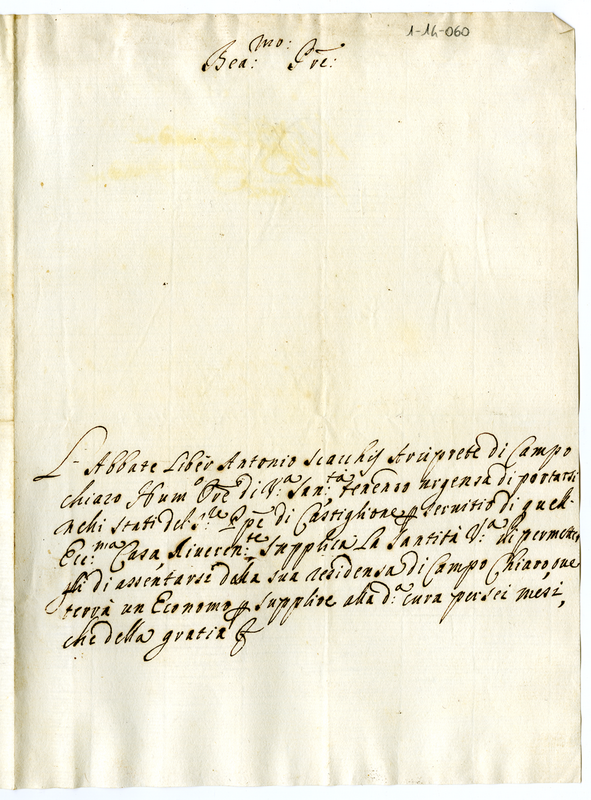 1-14-060
Bea:mo: Pre:
L'Abbate Liber Antonio Scacchi Arciprete di Campo
chiaro Hum.o Ore di V.a San:tà, tenendo urgenza di portarsi
nelli stati del S.re Pñpe di Castiglione p servitio di quell'
Ecc:ma Casa, Riveren:te supplica La Santità V.a di permetter
gli di assentarsi dalla sua residensa di Campo Chiaro, ove
terrà un Economo p supplire alla d.a cura per sei mesi,
che della gratia &